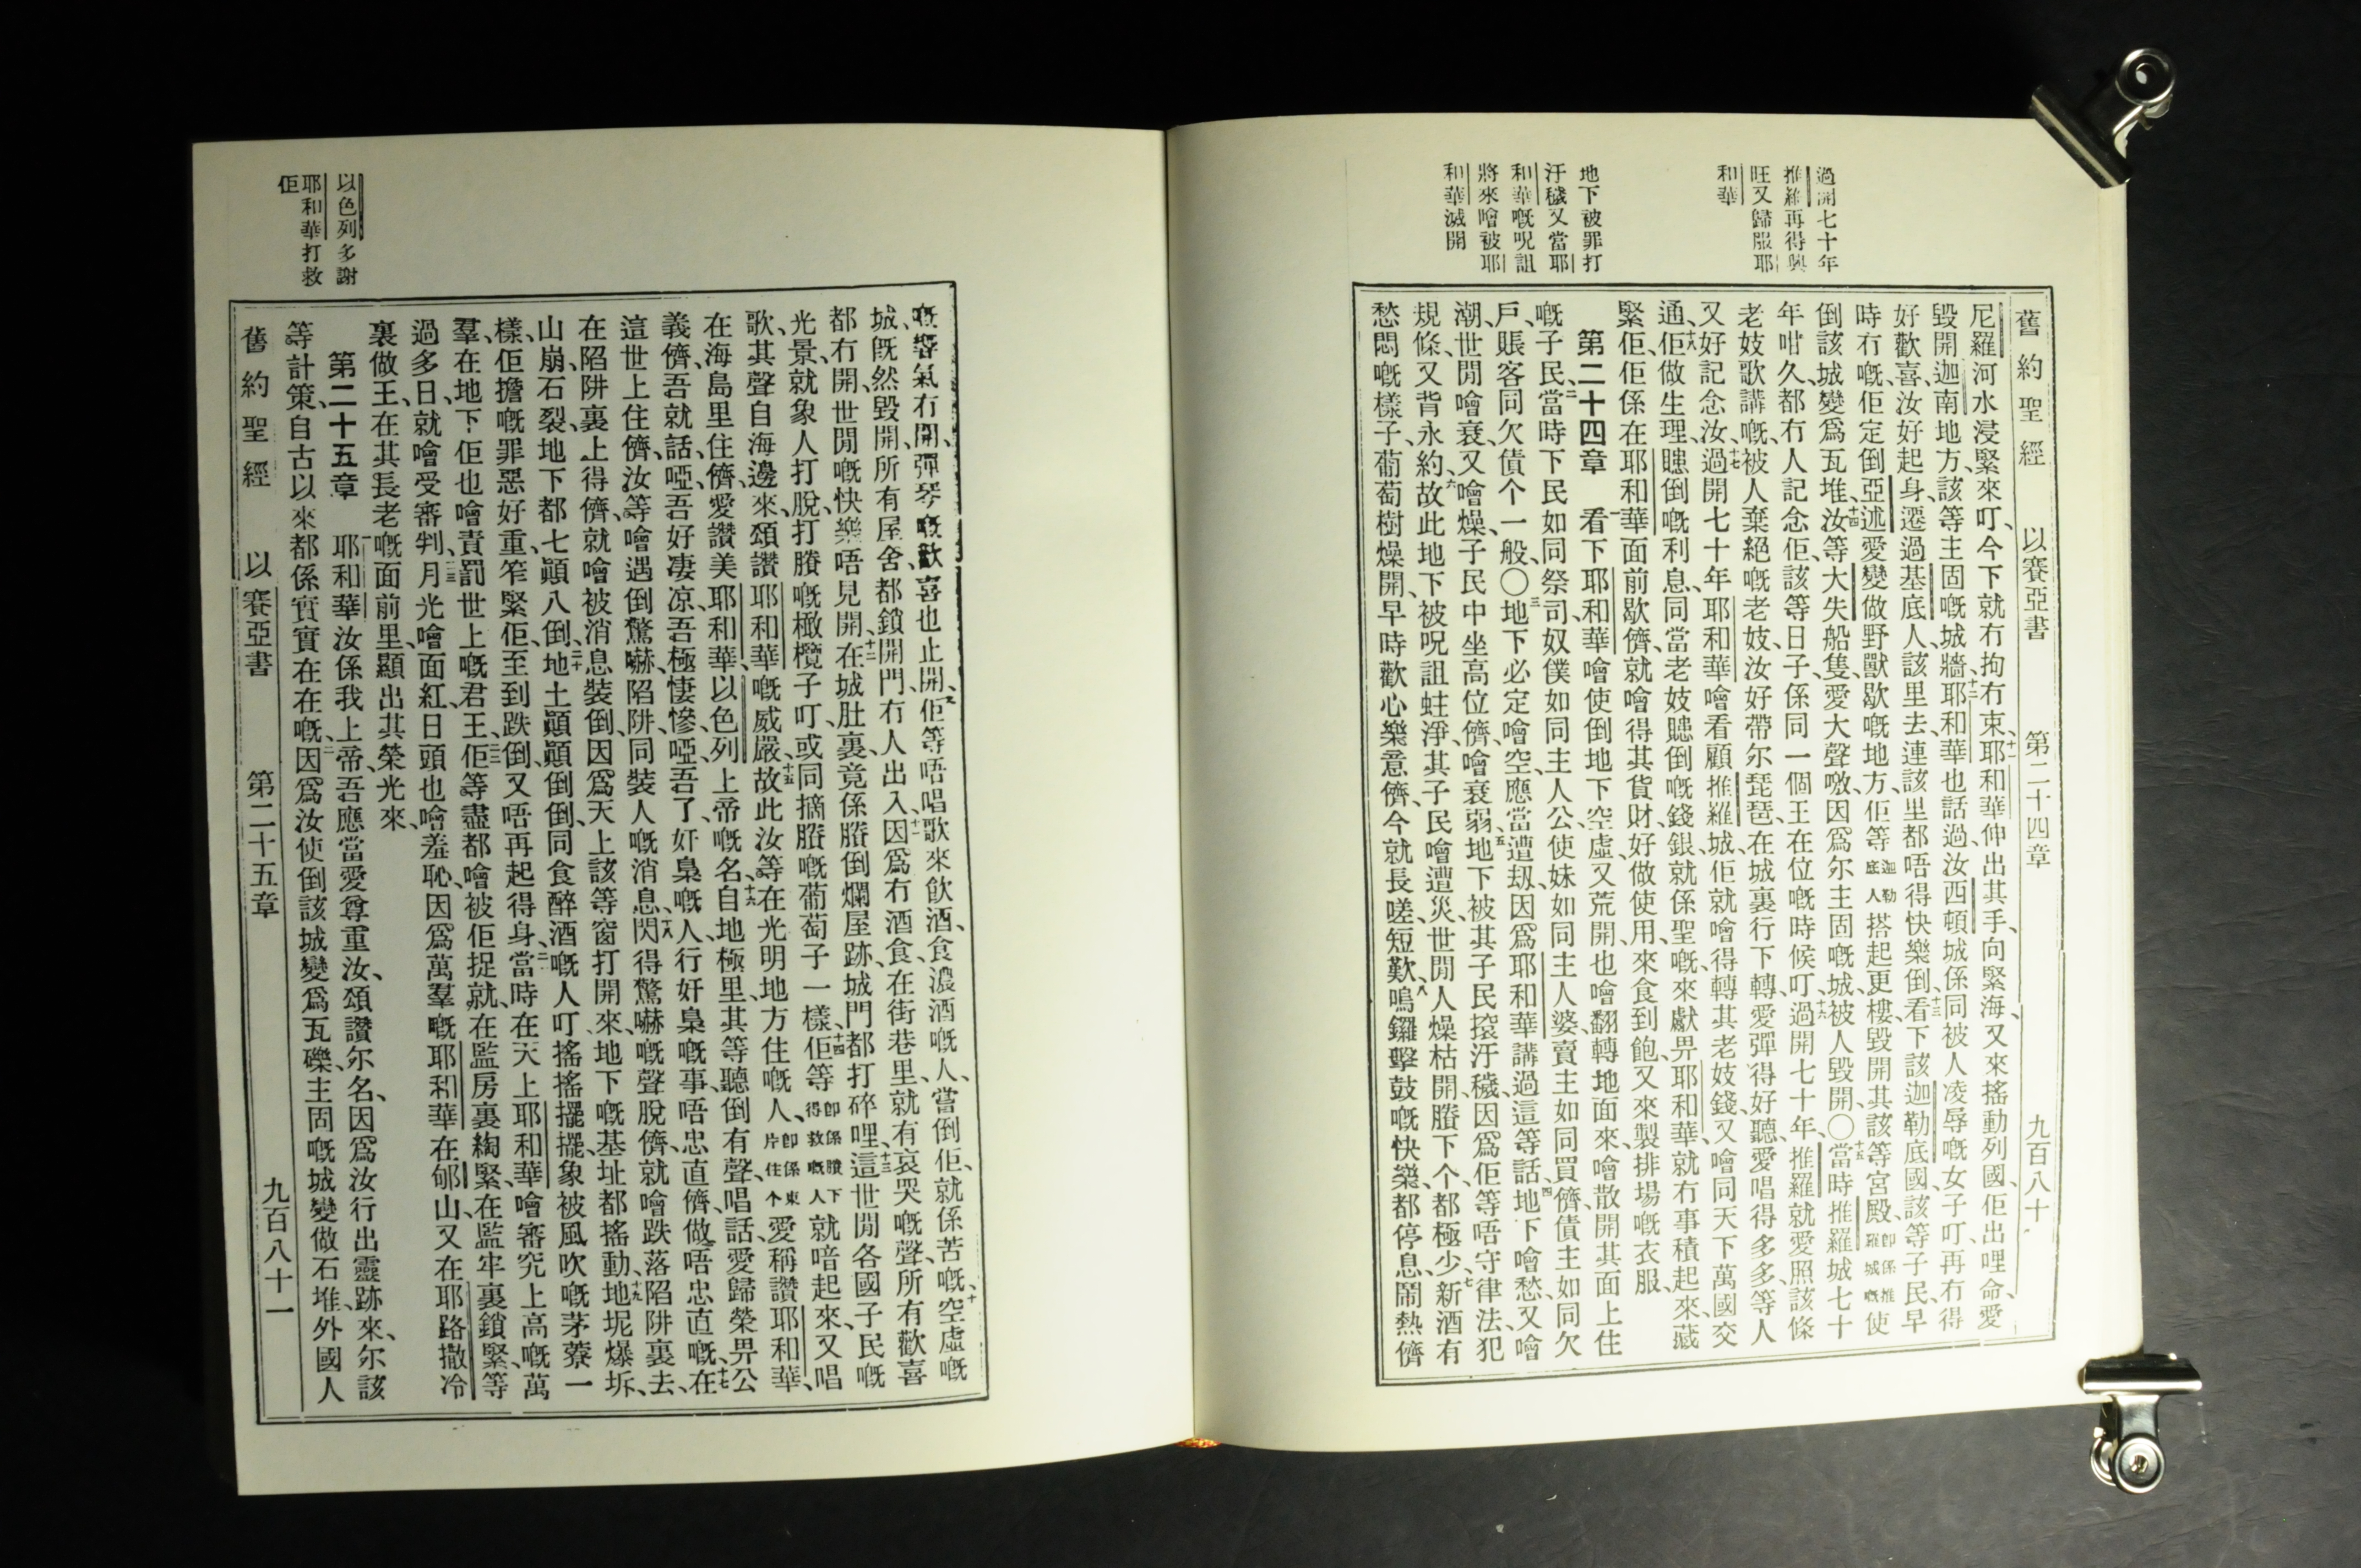 舊約聖經 以賽亞書 第二十四章 九百八十
過開七十年
推羅再得興
旺又歸服耶
和華
地下被罪打
汙穢又當耶
和華嘅呪詛
將來噲被耶
和華滅開
尼羅河水浸緊來叮、今下就冇拘冇束、十一耶和華伸出其手、向緊海、又來搖動列國、佢出哩命、愛
毀開迦南地方、該等主固嘅城牆、十二耶和華也話過、汝西頓城係同被人凌辱嘅女子叮、再冇得
好歡喜、汝好起身、遷過基底人該里去、連該里都唔得快樂倒、十三看下該迦勒底國、該等子民早
時冇嘅、佢定倒亞述愛變做野獸歇嘅地方、佢等迦勒底人搭起更樓、毀開其該等宮殿、卽係推羅城嘅使
倒該城變爲瓦堆、十四汝等大失船隻、愛大聲噭、因爲尔主固嘅城、被人毀開、〇十五當時推羅城七十
年咁久、都冇人記念佢、該等日子、係同一個王在位嘅時候叮、十六過開七十年、推羅就愛照該條
老妓歌講嘅、被人棄絕嘅老妓、汝好帶尔琵琶、在城裏行下轉、愛彈得好聽、愛唱得多多、等人
又好記念汝、十七過開七十年、耶和華噲看顧推羅城、佢就噲得轉其老妓錢、又噲同天下萬國交
通、十八佢做生理、賺倒嘅利息、同當老妓賺倒嘅錢銀、就係聖嘅、來獻畀耶和華、就冇事積起來、藏
緊佢、佢係在耶和華面前歇儕、就噲得其貨財、好做使用、來食到飽、又來製排場嘅衣服、
第二十四章 一看下耶和華噲使倒地下空虛又荒開、也噲翻轉地面來、噲散開其面上住
嘅子民、二當時下民如同祭司、奴僕如同主人公、使妹如同主人婆、賣主如同買儕、債主如同欠
戶、賬客同欠債个一般、〇三地下必定噲空、應當遭刼、因爲耶和華講過這等話、四地下噲愁、又噲
潮、世閒噲衰、又噲燥、子民中坐高位儕、噲衰弱、五地下被其子民㨰汙穢、因爲佢等唔守律法、犯
規條、又背永約、六故此地下被呪詛蛀淨、其子民噲遭災、世閒人燥枯開、賸下个都極少、七新酒有
愁悶嘅樣子、葡萄樹燥開、早時歡心樂意儕、今就長嗟短歎、八鳴鑼擊鼓嘅快樂、都停息、鬧熱儕
以色列多謝
耶和華打救
佢
嘅響氣冇開、彈琴嘅歡喜也止開、九佢等唔唱歌來飲酒、食濃酒嘅人、嘗倒佢、就係苦嘅、十空虛嘅
城、旣然毀開、所有屋舍、都鎖開門、冇人出入、十一因爲冇酒食、在街巷里、就有哀哭嘅聲、所有歡喜
都冇開、世閒嘅快樂唔見開、十二在城肚裏、竟係賸倒爛屋跡、城門都打碎哩、十三這世閒各國子民嘅
光景、就象人打脫、打賸嘅橄欖子叮、或同摘賸嘅葡萄子一樣、十四佢等卽係賸下得救嘅人就啽起來、又唱
歌、其聲自海邊來、頌讚耶和華嘅威嚴、十五故此汝等在光明地方住嘅人、卽係東片住个愛稱讚耶和華、
在海島里住儕、愛讚美耶和華以色列上帝嘅名、十六自地極里、其等聽倒有聲、唱話、愛歸榮畀公
義儕、吾就話、啞吾好凄凉、吾極悽慘、啞吾了、奸梟嘅人、行奸梟嘅事、唔忠直儕、做唔忠直嘅、十七在
這世上住儕、汝等噲遇倒驚嚇、陷阱、同裝人嘅消息、十八閃得驚嚇嘅聲脫儕、就噲跌落陷阱裏去、
在陷阱裏上得儕、就噲被消息裝倒、因爲天上該等窗打開來、地下嘅基址都搖動、十九地坭爆坼、
山崩石裂、地下都七顚八倒、二十地土顚顚倒倒、同食醉酒嘅人叮、搖搖擺擺、象被風吹嘅茅藔一
樣、佢擔嘅罪惡好重、笮緊佢、至到跌倒、又唔再起得身、二一當時在天上耶和華噲審究上高嘅萬
羣、在地下、佢也噲責罰世上嘅君王、二二佢等盡都噲被佢捉、就在監房裏綯緊、在監牢裏鎖緊、等
過多日、就噲受審判、二三月光噲面紅、日頭也噲羞恥、因爲萬羣嘅耶和華在郇山、又在耶路撒冷
裏做王、在其長老嘅面前里、顯出其榮光來、
第二十五章 一耶和華汝係我上帝、吾應當愛尊重汝、頌讚尔名、因爲汝行出靈跡來、尔該
等計策、自古以來、都係實實在在嘅、二因爲汝使倒該城變爲瓦礫、主固嘅城變做石堆、外國人
舊約聖經 以賽亞書 第二十五章 九百八十一